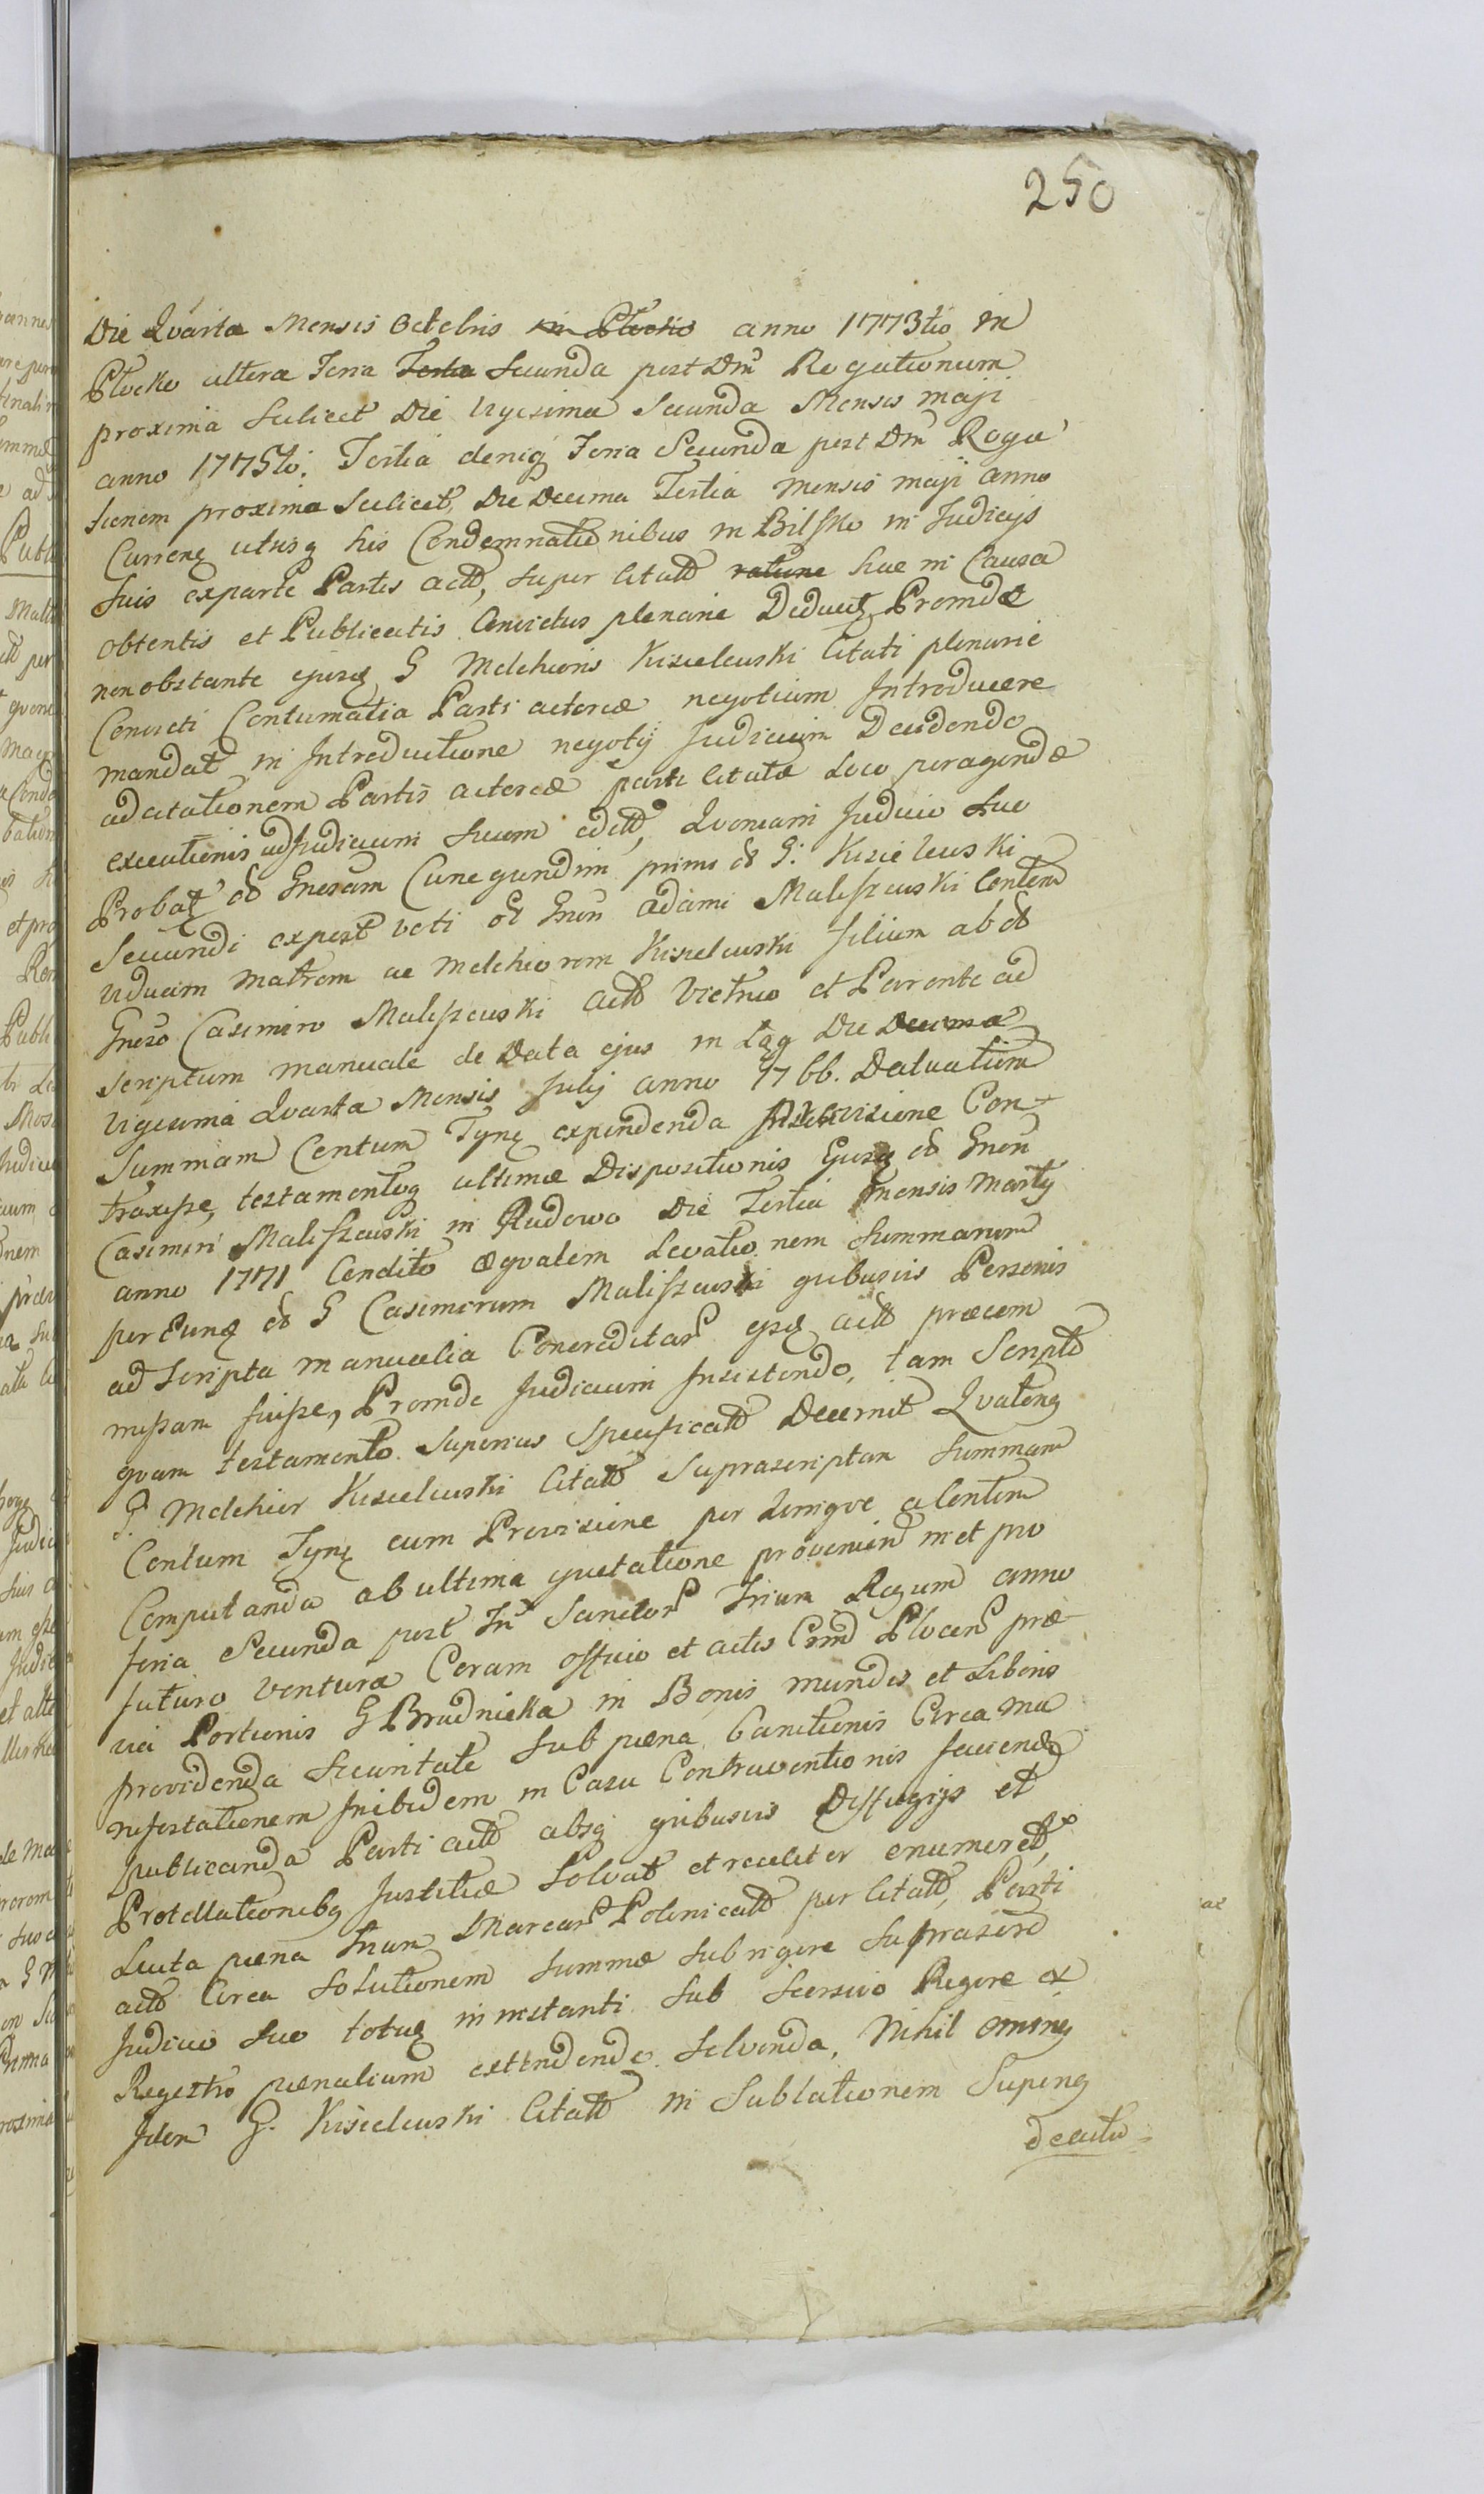 250
Die Qvarta Mensis Octobris in Plocko anno 1773tio in
Plocko altera Feria Tertia Secunda post Dm Rogationum
proxima scilicet Die Vigesima Secunda Mensis maji
anno 1775to. Tertia deniq Feria Secunda post Dm Roga
tionem proxima scilicet, Die Decima Tertia mensis maji anno
Curren utrisq his Condemnationibus in Bilsko in Judicijs
suis exparte Partis act, super Citatt ratione hac in Causa
obtentis et Publicatis Convictus plenarie Proinde
non obstante ejusq G Melchioris Kisielewski Citati plenarie
Convicti Contumatia Parti actoreæ negotium Introducere
mandat, in Introductione negotij Judicium Decidendo
adcitationem Partis actoreæ parti Citatæ Loco peragendæ
executionis adJudicium suum Qvoniam Judicio suo
Probat Gnesam Cunegundim primi G. Kisielewski
Secundi expost voti Gnen Adami Maliszewski
viduam matrem ac Melchiorem Kisielewski filium ab
Gneso Casimiro Maliszewski actt Vietrico et Parente ad
scriptum manuale de Data ejus in Die Decima
vigesima Qvarta Mensis Julij anno 1766. Datuatim
Summam Centum Tynf expendenda Con-
traxisse, testamentoq ultimæ Dispositionis Ejusq Gnen
Casimiri Maliszewski in Rudowo Die Tertia mensis Martij
anno 1771 Condito æqvalem Levationem Summarum
per G Casimirum Maliszewski qvibusvis Personis
ad scripta manualia Concreditar actt præcom
missam fuisse, Proinde Judicium Insistendo, tam Scripto
qvam testamento superius Specificatt Decernit Qvateng
G. Melchior Kisielewski Citatt Suprascriptam Summam
Centum Tynf cum Provisione per
Computanda ab ultima qvietatione provenien in et pro
feria Secunda post Sanctor Trium Regum anno
futuro ventura Coram officio et actis Plocen præ
via Portionis G Brudnicka in Bonis mundis et Liberis
providenda Securitate sub pæna banitionis Circa ma
nifestationem Inibidem in Casu Contraventionis faciend
publicanda Parti actt absq qvibusvis Diffugijs et
Protellationibq Justitiæ Solvat et realiter enumeret,
Luita pæna trium Marcar Polonicatt per Citatt, Parti
actt Circa solutionem summæ sub rigore
Judicio suo in instanti sub Rigore ex
Regestro pænalium extendendo Solvenda, Nihil
Idem G. Kisielewski Citatt in Sublationem Superiq